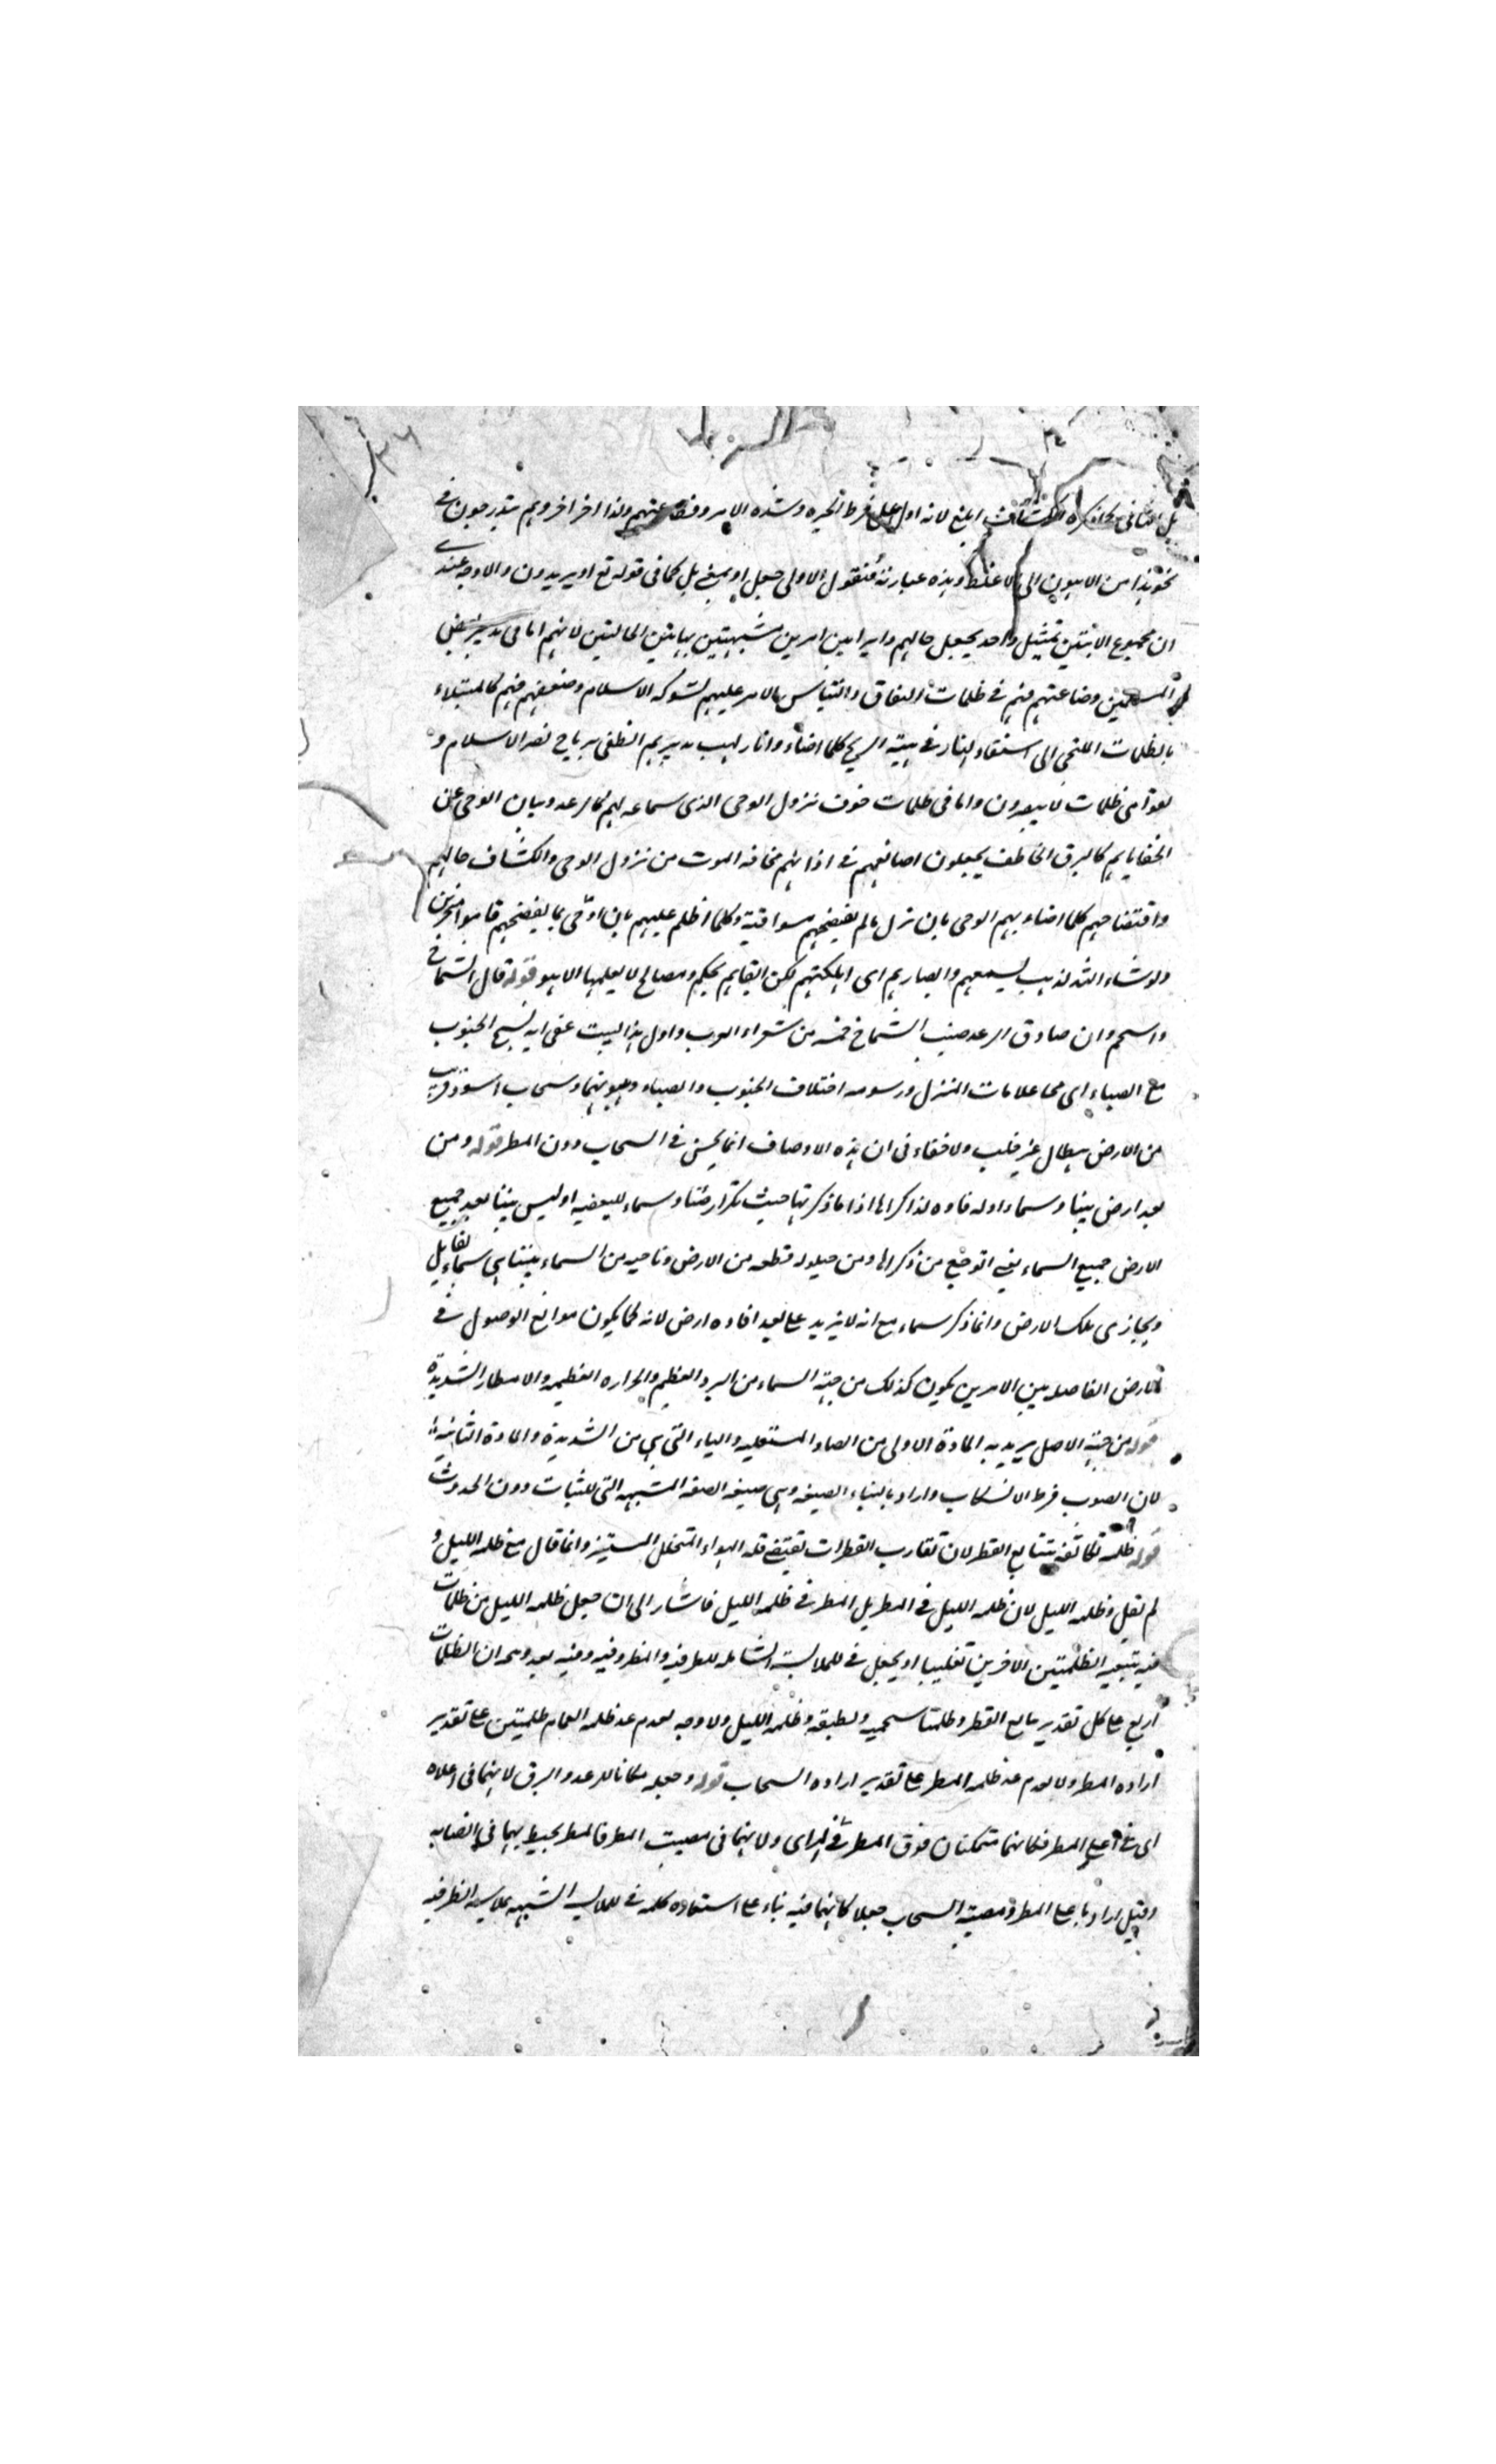 بل الثانى كما ذكره الكشاف ابلغ لانه ادل على فرط الحيرة وشدة الامر وفظاعته ولذا اخر اخر وهم يتدرجون فى
نحو هذا من الاهون الى الاغلظ وهذه عبارته فنقول الاولى جعل او بمعنى بل كما فى قوله تع او يزيدون والاوجه عندى
ان مجموع الاثنين تمثيل واحد يجعل حالهم دايرا بين امرين مشبهتين بهاتين الحالتين لانهم اما فى تدبير
المسلمين وضاعتهم فهم فى ظلمات النفاق والتباس الامر عليهم لشوكة الاسلام وضعفهم فهم كالمبتلاء
بالظلمات الملتجى الى استيقاد النار فى هبة الريح كلما اضاء وانار لهب تدبيرهم انطفى برياح نصر الاسلام و
بقوا فى ظلمات لا يبصرون واما فى ظلمات خوف نزول الوحى الذى سماعه لهم كالرعد وبيان الوحى عن
الخفاياهم كالبرق الخاطف يجعلون اصابعهم فى اذانهم مخافة الموت من نزول الوحى وانكشاف حالهم
وافتضاحهم كلما اضاء بهم الوحى بان نزل بما لم يفضحهم وكلما اظلم عليهم بان اوحى بما يفضحهم قاموا متحيرين
ولو شاء الله لذهب بسمعهم وابصارهم اى اهلكتهم لكن ابقاهم لحكم ومصالح لا يعلمها الا هو قوله قال الشماخ
واسحم دان صادق الرعد صيب الشماخ من شعراء العرب واول هذا البيت عفى ايه نسج الجنوب
مع الصباء اى محا علامات المنزل ورسومه اختلاف الجنوب والصباء وهبوبهما وسحاب اسود قريب
من الارض هطال غير خلب ولا خفاء فى ان هذه الاوصاف انما يحسن فى السحاب دون المطر قوله ومن
بعد ارض بيننا وسماء اوله فاوه لذكراها اذا ما ذكرتها حيث نكر ارضنا وسماء للبعضية اذ ليس بيننا بعد جميع
الارض جميع السماء يعنى اتوجع من ذكراها ومن حيلولة قطعة من الارض وناحية من السماء بيننا هى سماء يقابل
ويحاذى تلك الارض وانما ذكر سماء مع انه لا يزيد على بعد افاده ارض لانه كما يكون موانع الوصول فى
الارض الفاصلة بين الامرين يكون كذلك من جهة السماء من البرد العظيم والحرارة العظيمة والامطار الشديدة
قوله من جهة الاصل يريد به المادة الاولى من الصاد المستعلية والياء التى هى من الشديدة والمادة الثانية
لان الصوب فرط الانسكاب واراد بالبناء الصيغة وهى صيغة الصفة المشبهة التى للثبات دون الحدوث
قوله ظلمة تكاثفه بتتابع القطر لان تقارب القطرات تقتضى قلة الهواء المتخلل المستنير وانما قال مع ظلمة الليل و
لم يقل وظلمة الليل لان ظلمة الليل فى المطر بل المطر فى ظلمة الليل فاشار الى ان جعل ظلمة الليل من ظلمات
فيه بتبعية الظلمتين الاخرين تغليبا او يجعل فى للملابسة الشاملة للظرفية والمظروفية وفيه بعد ان الظلمات
اربع على كل تقدير تتابع القطر وظلمتا سحمته وتطبيقه وظلمة الليل ولا وجه لعدم عد ظلمة الغمام ظلمتين على تقدير
ارادة المطر ولا لعدم عد ظلمة المطر على تقدير ارادة السحاب قوله وجعله مكانا للرعد والبرق لانهما فى اعلاه
اى فى اعلى المطر فكانهما متمكنان فوق المطر فى المراى ولانهما فى مصب المطر فالمطر يحيط بهما فى انصبابه
وقيل اراد باعلى المطر ومصبه السحاب جعلا كانهما فيه بناء على استعارة كلمة فى للملابسة الشبيهة بملابسة الظرفية